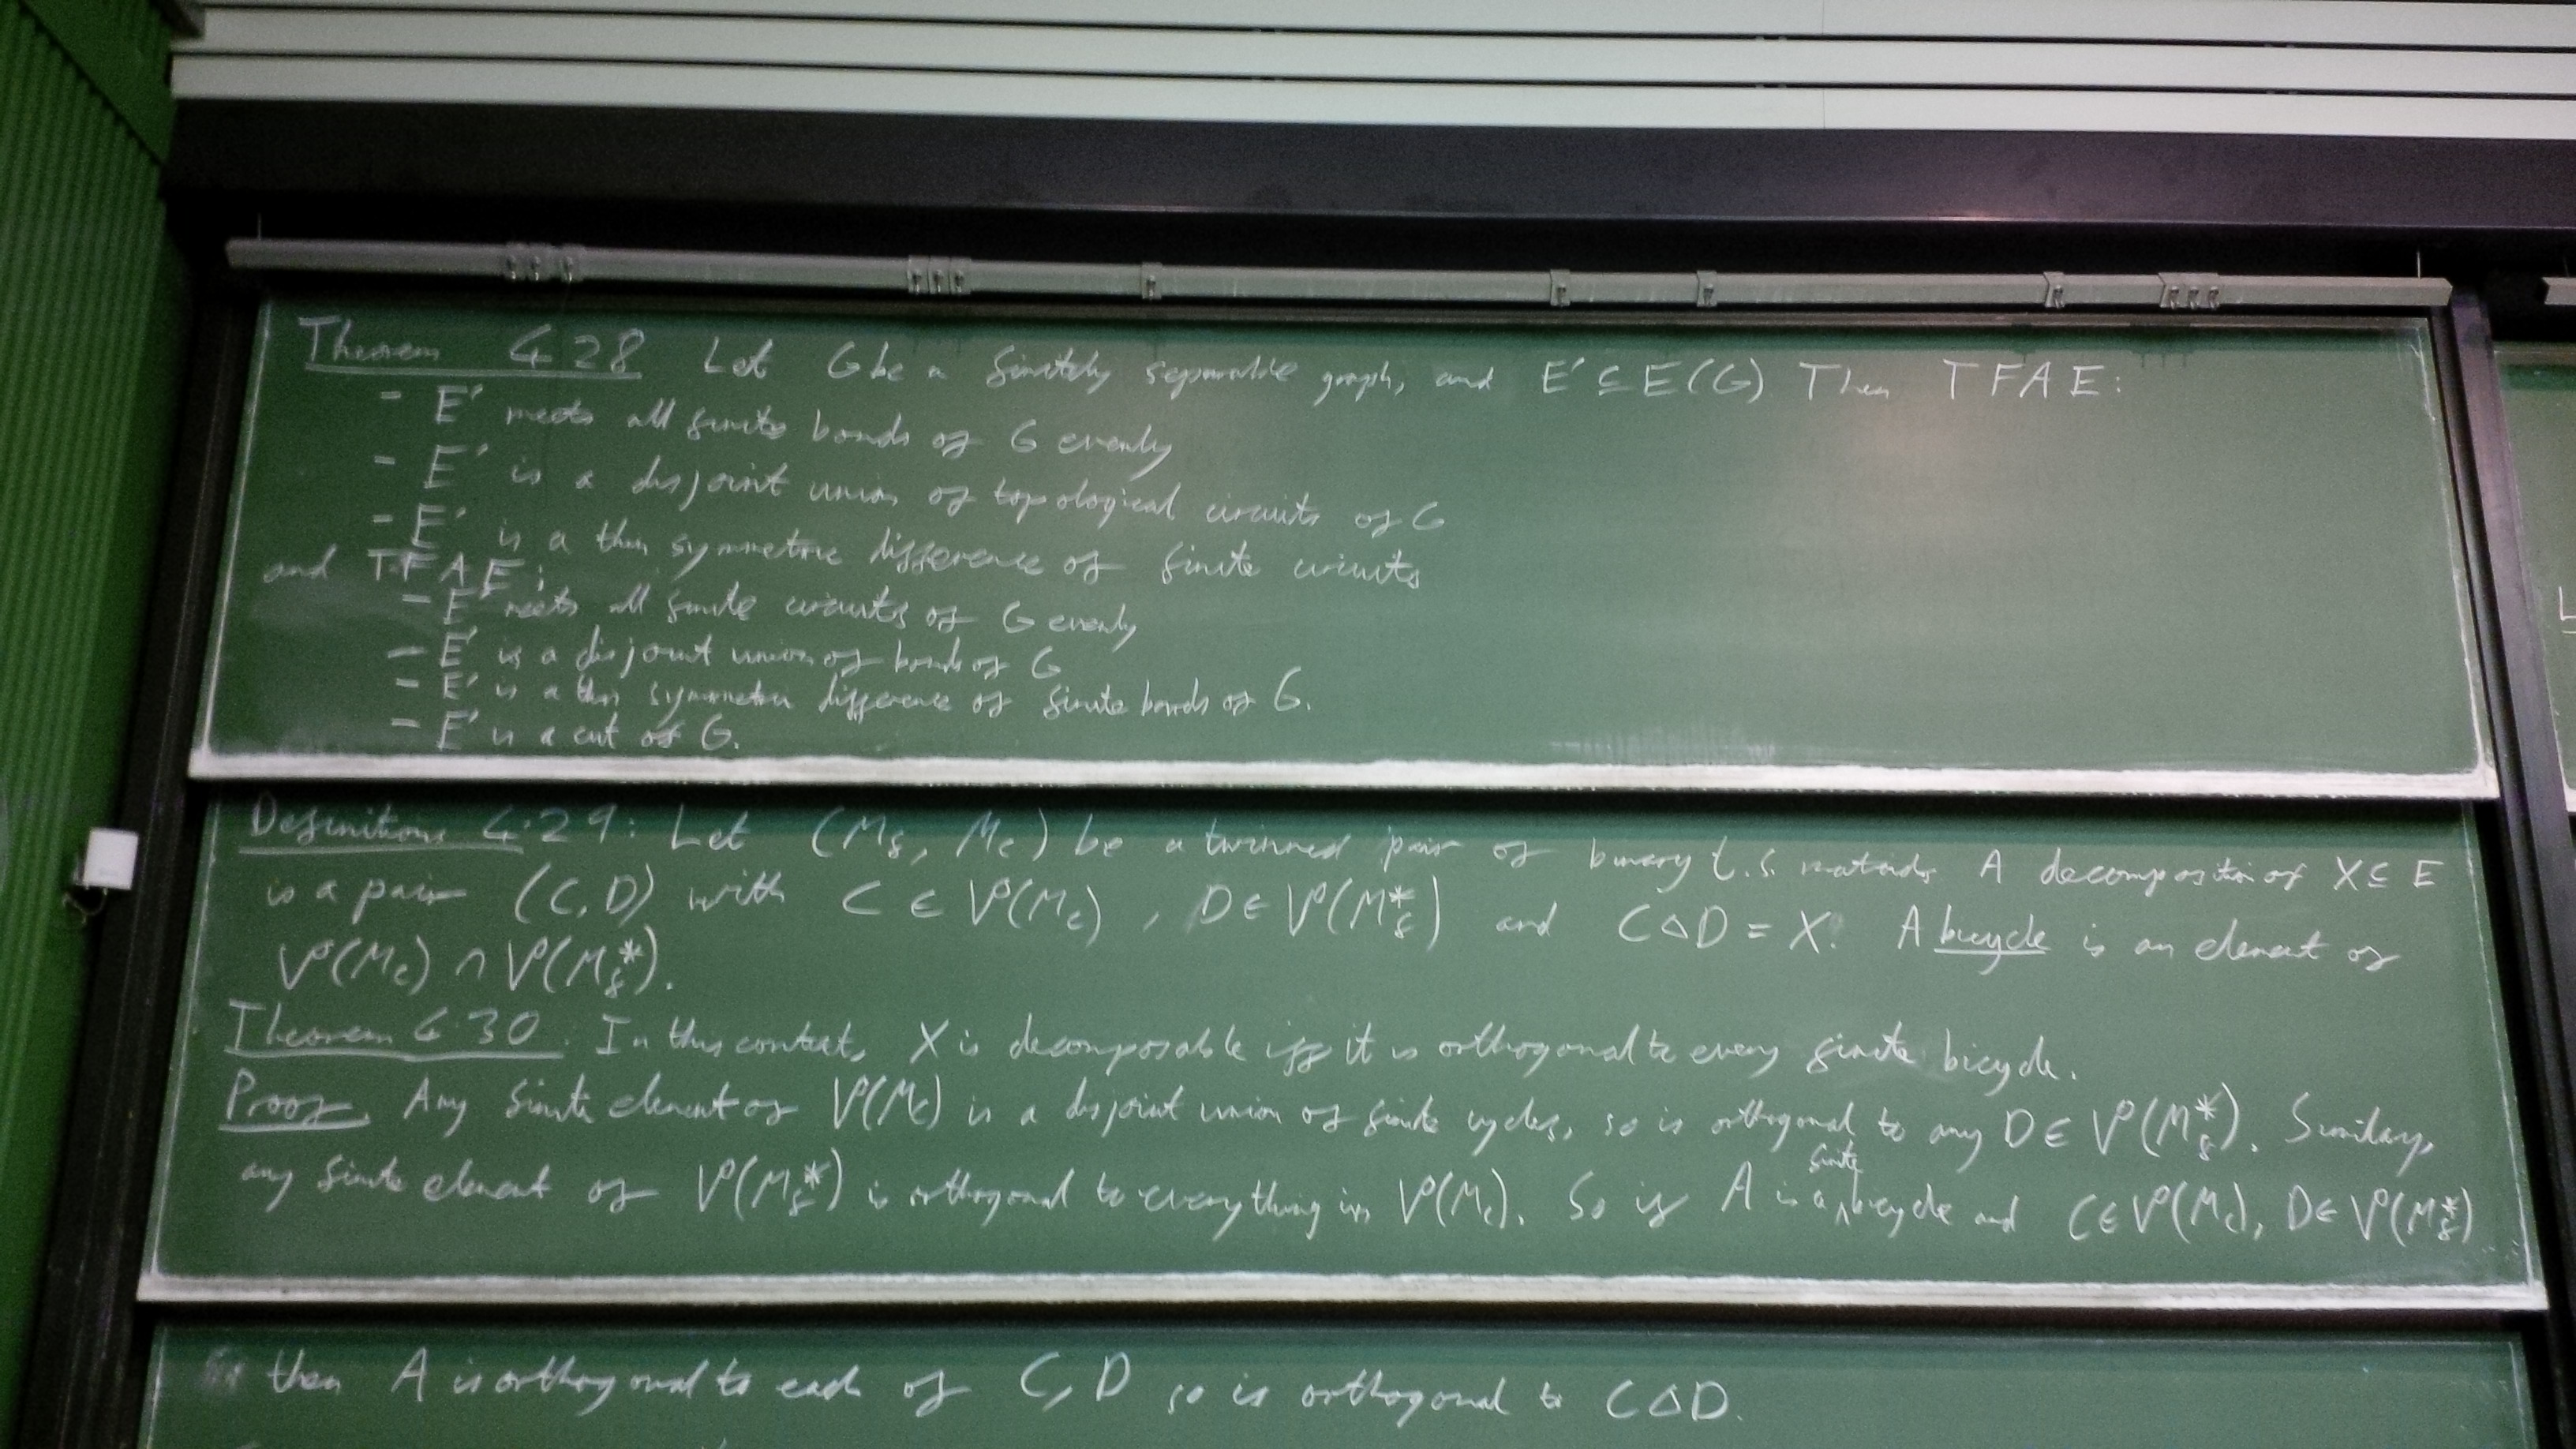 Theorem 4.28 Let G be a finitely separable graph, and E' ⊆ E(G) Then TFAE:
- E' meets all finite bonds of G evenly
- E' is a disjoint union of topological circuits of G
- E' is a thin symmetric difference of finite circuits
and TFAE:
- E' meets all finite circuits of G evenly
- E' is a disjoint union of bonds of G
- E' is a thin symmetric difference of finite bonds of G.
- E' is a cut of G.
Definition 4.29: Let (M_f, M_c) be a twinned pair of binary t.s. matroids. A decomposition of X ⊆ E
is a pair (C, D) with C ∈ V(M_c), D ∈ V(M_f^*) and C △ D = X. A bicycle is an element of
V(M_c) ∩ V(M_f^*).
Theorem 4.30. In this context, X is decomposable iff it is orthogonal to every finite bicycle.
Proof. Any finite element of V(M_c) is a disjoint union of finite cycles, so is orthogonal to any D ∈ V(M_f^*). Similarly,
any finite element of V(M_f^*) is orthogonal to everything in V(M_c). So if A is a finite bicycle and C ∈ V(M_c), D ∈ V(M_f^*)
then A is orthogonal to each of C, D so is orthogonal to C △ D.